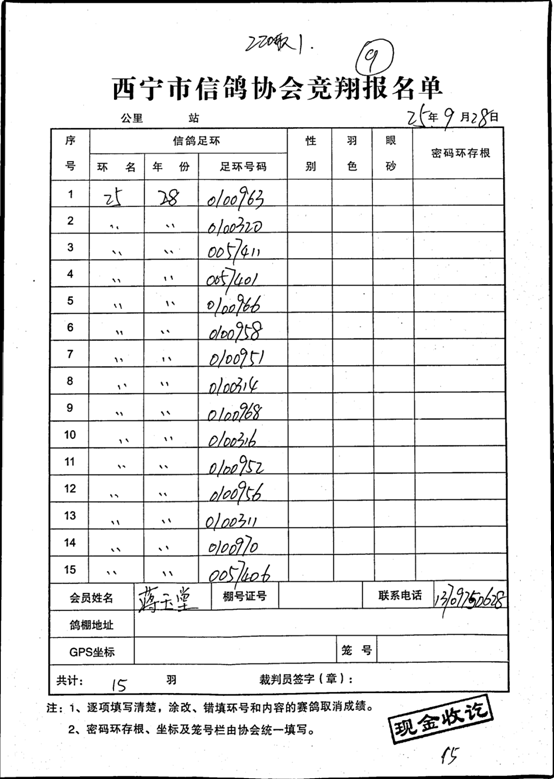 ⑨
西宁市信鸽协会竞翔报名单
公里 站 25年9月28日
序号 信鸽足环 性别 羽色 眼砂 密码环存根
环名 年份 足环号码
1 25 28 0100963
2 〃 〃 0100320
3 〃 〃 0057411
4 〃 〃 0057401
5 〃 〃 0100966
6 〃 〃 0100958
7 〃 〃 0100951
8 〃 〃 0100314
9 〃 〃 0100968
10 〃 〃 0100316
11 〃 〃 0100952
12 〃 〃 0100956
13 〃 〃 0100311
14 〃 〃 0100970
15 〃 〃 0057406
会员姓名 蒋玉堂 棚号证号 联系电话 13709750628
鸽棚地址
GPS坐标 笼号
共计: 15 羽 裁判员签字(章):
注:1、逐项填写清楚,涂改、错填环号和内容的赛鸽取消成绩。
2、密码环存根、坐标及笼号栏由协会统一填写。
现金收讫
15